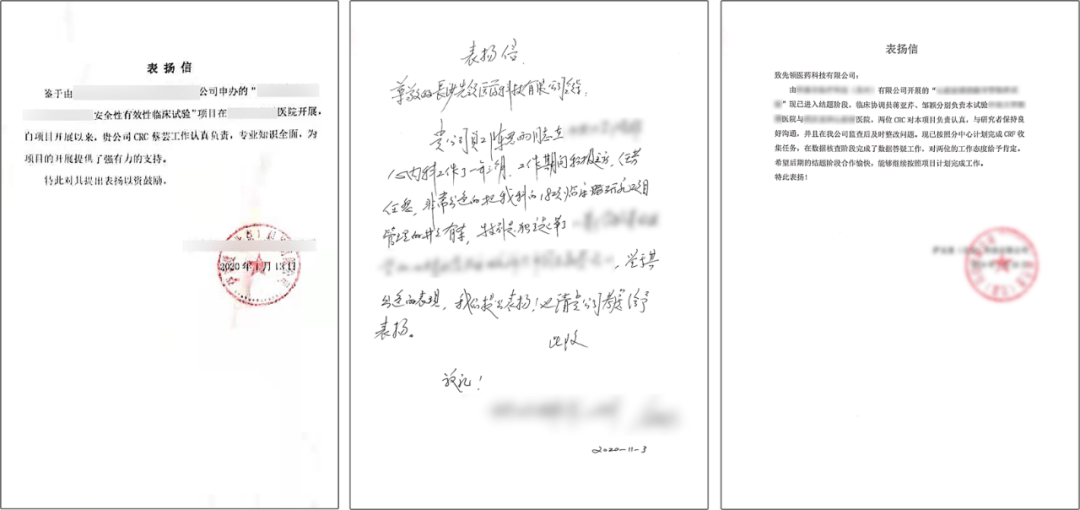 表扬信
鉴于由 公司申办的“
安全性有效性临床试验”项目在 医院开展，
自项目开展以来，贵公司 CRC 蔡芸工作认真负责，专业知识全面，为
项目的开展提供了强有力的支持。
特此对其提出表扬以资鼓励。
2020 年 1 月 13 日
表扬信
尊敬的长沙先领医药科技有限公司
贵公司员工陈 同志在
心内科工作了一年 月，工作期间积极主动，任劳
任怨，非常 的把我科的18项临床 项目
管理的井井有条，特别是
，鉴于其
出色的表现，我们提出表扬！也请贵公司考虑给予
表扬。
此致
敬礼！
2020-11-3
表扬信
致先领医药科技有限公司：
由 有限公司开展的“
”现已进入结题阶段，临床协调员蒋亚芹、邹颖分别负责本试验
医院与 医院，两位 CRC 对本项目负责认真，与研究者保持良
好沟通，并且在我公司监查后及时整改问题。现已按照分中心计划完成 CRF 收
集任务，在数据核查阶段完成了数据答疑工作，对两位的工作态度给予肯定。
希望后期的结题阶段合作愉快，能够继续按照项目计划完成工作。
特此表扬！